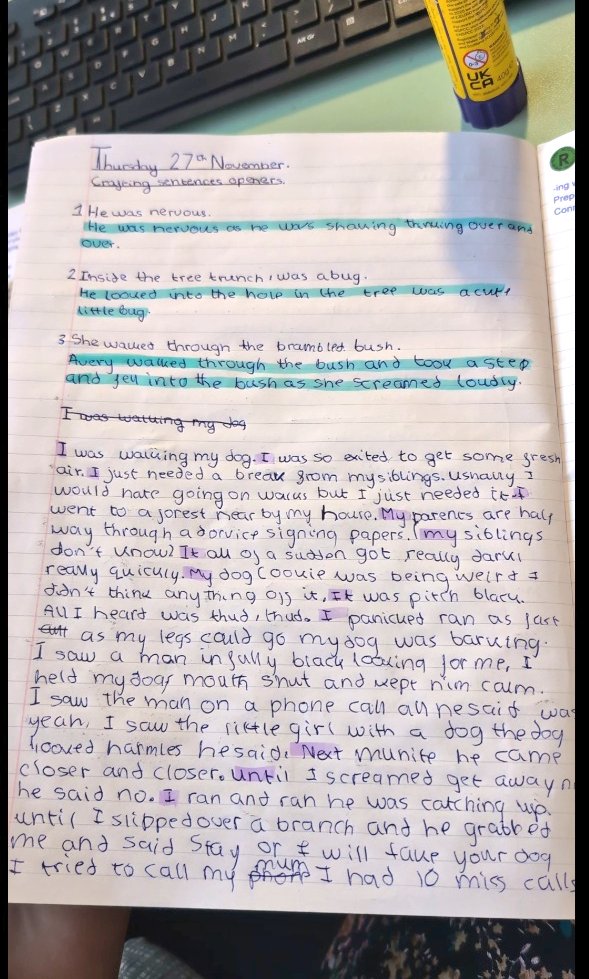 Thursday 27th November.
Crafting sentences openers.
1 He was nervous.
He was nervous as he was shaking thinuing over and
over.
2 Inside the tree trunch, was a bug.
He looked into the hole in the tree was a cute
little bug.
3 She walked through the brambled bush.
Avery walked through the bush and took a step
and fell into the bush as she screamed loudly.
I was walking my dog
I was walking my dog. I was so exited to get some fresh
air. I just needed a break from my siblings. usually I
would hate going on walks but I just needed it. I
went to a forest near by my house. My parents are half
way through a dorvice signing papers. (my siblings
don't know) It all of a sudden got really dark
really quickly. My dog Cookie was being weird I
didn't think anything off it. It was pitch black.
All I heard was thud, thud. I panicked ran as fast
as my legs could go my dog was barking.
I saw a man in fully black looking for me, I
held my dogs mouth shut and kept him calm.
I saw the man on a phone call all he said was
yeah, I saw the little girl with a dog the dog
looked harmles he said. Next munite he came
closer and closer. until I screamed get away
he said no. I ran and ran he was catching up.
until I slipped over a branch and he grabbed
me and said stay or I will take your dog
I tried to call my mum I had 10 miss calls
R
-ing
Prep
Con
UK
CA
40g
Alt Gr